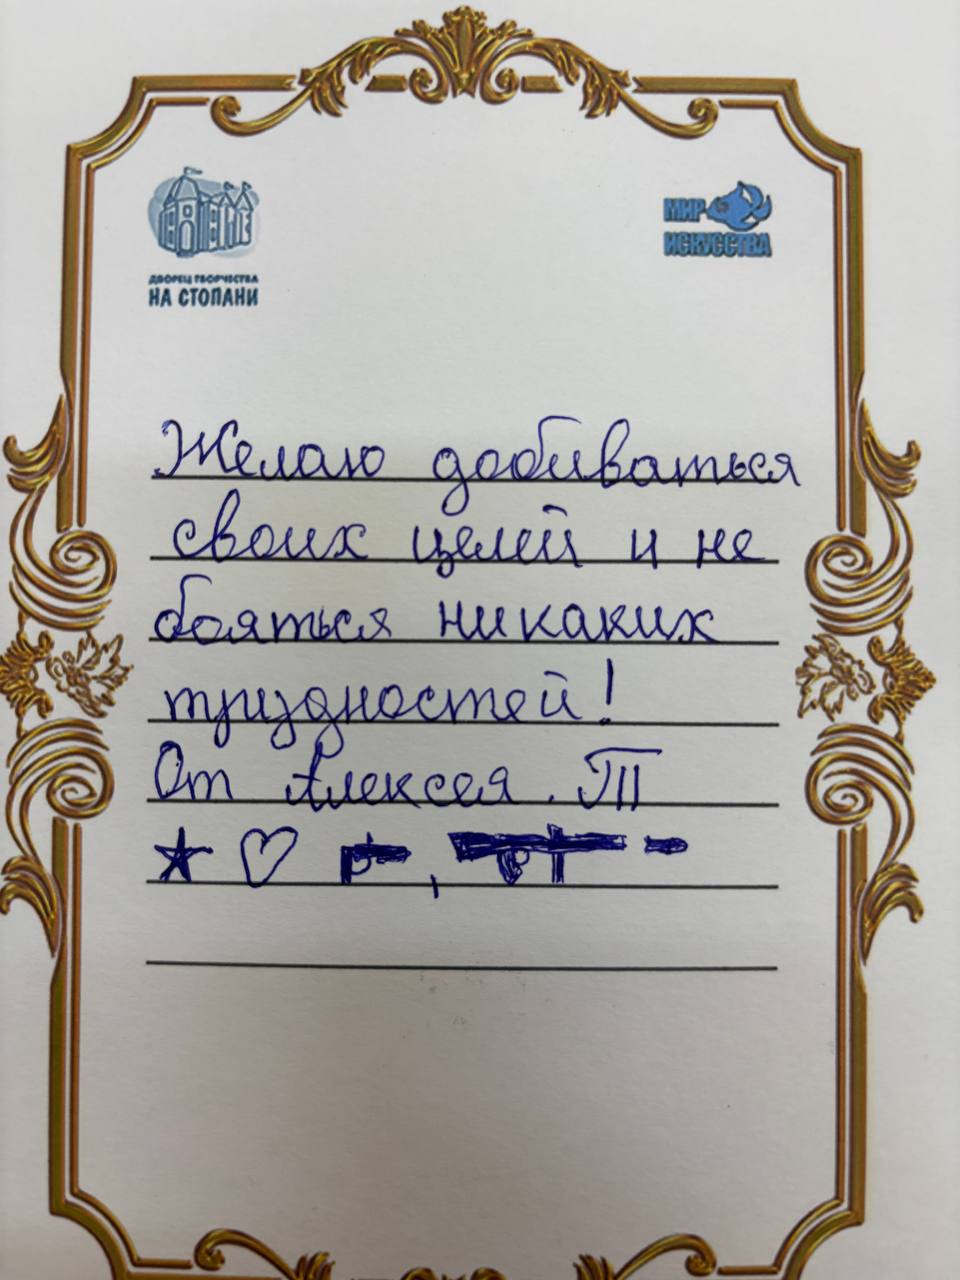 ДВОРЕЦ ТВОРЧЕСТВА
НА СТОПАНИ
МИР
ИСКУССТВА
Желаю добиваться
своих целей и не
бояться никаких
трудностей!
От Алексея. Т